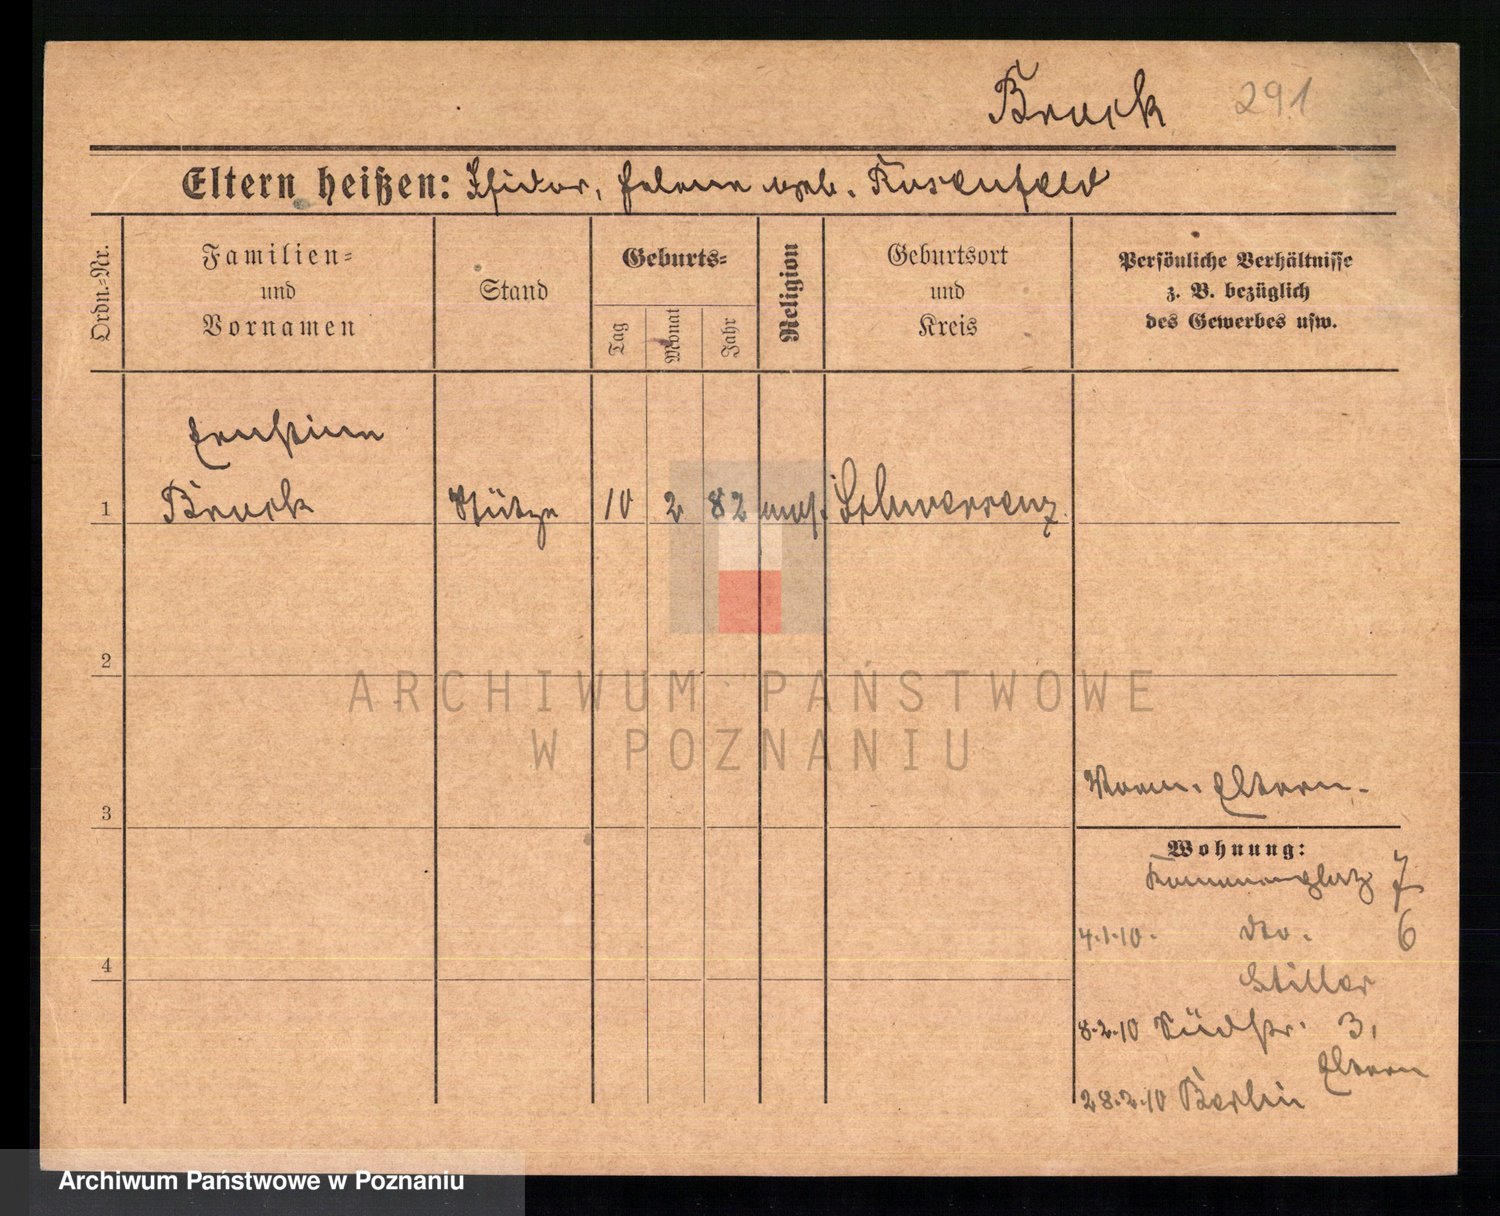 Bruck 291
Eltern heißen: Isidor, Helene geb. Rosenfeld
Ordn.-Nr.
Familien-
und
Vornamen
Stand
Geburts-
Tag
Monat
Jahr
Religion
Geburtsort
und
Kreis
Persönliche Verhältnisse
z. B. bezüglich
des Gewerbes usw.
Ernstine
1 Bruck Stütze 10 2 82 mos. Schwersenz
2
3
Eltern.
Wohnung:
7
4.1.10. dto. 6
Stiller
4
8.2.10 Südstr. 3,
Eltern
28.2.10 Berlin
ARCHIWUM PAŃSTWOWE
W POZNANIU
Archiwum Państwowe w Poznaniu